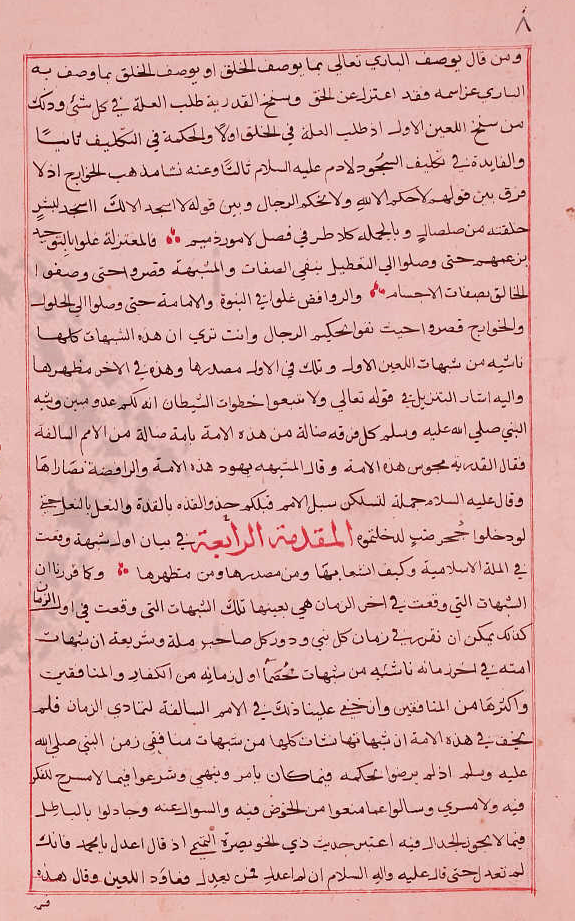 ٨
ومن قال يوصف الباري تعالى بما يوصف الخلق او يوصف الخلق بما وصف به
الباري عز اسمه فقد اعتزل عن الحق وسنخ القدرية طلب العلة في كل شئ وذلك
من سنخ اللعين الاول اذ طلب العلة في الخلق اولا والحكمة في التكليف ثانيا
والفايدة في تكليف السجود لادم عليه السلام ثالثا وعنه نشا مذهب الخوارج اذ لا
فرق بين قولهم لا حكم الا لله ولا نحكم الرجال وبين قوله لا اسجد الا لك ااسجد لبشر
خلقته من صلصال وبالجملة كلا طرفي فصل الامور ذميم فالمعتزلة غلوا بالتوحيد
بزعمهم حتى وصلوا الى التعطيل بنفي الصفات والمشبهة قصروا حتى وصفوا ا
الخالق بصفات الاجسام والروافض غلوا في النبوة والامامة حتى وصلوا الى الحلول
والخوارج قصروا حيث نفوا تحكيم الرجال وانت تري ان هذه الشبهات كلها
ناشيه من شبهات اللعين الاول وتلك في الاول مصدرها وهذه في الاخر مظهرها
واليه اشار التنزيل في قوله تعالي ولا تتبعوا خطوات الشيطان انه لكم عدو مبين وشبه
النبي صلي الله عليه وسلم كل فرقه ضالة من هذه الامة بامة ضالة من الامم السالفة
فقال القدريه مجوس هذه الامة وقال المشبهه يهود هذه الامة والرافضة نصاراها
وقال عليه السلام جملة لتسلكن سبل الامم قبلكم حذو القذه بالقذة والنعل بالنعل حتي
لو دخلوا جحر ضب لدخلتموه المقدمة الرابعة في بيان اول شبهة وقعت
في الملة الاسلامية وكيف انشعابها ومن مصدرها ومن مظهرها وكما قررنا ان
الشبهات التي وقعت في اخر الزمان هي بعينها تلك الشبهات التي وقعت في اول الزمان
كذلك يمكن ان نقرر في زمان كل نبي ودور كل صاحب ملة وشريعة ان شبهات
امته في اخر زمانه ناشئه من شبهات خصما اول زمانه من الكفار والمنافقين
واكثرها من المنافقين وان خفي علينا ذلك في الامم السالفة لتمادي الزمان فلم
يخف في هذه الامة ان شبهاتها نشات كلها من شبهات منافقي زمن النبي صلي الله
عليه وسلم اذ لم يرضوا بحكمه فيما كان يامر وينهي وشرعوا فيما لا مسرح للفكر
فيه ولا مسري وسالوا عما منعوا من الخوض فيه والسوال عنه وجادلوا بالباطل
فيما لا يجوز الجدال فيه اعتبر حديث ذي الخويصرة التميمي اذ قال اعدل يا محمد فانك
لم تعدل حتى قال عليه واله السلام ان لم اعدل فمن يعدل فعاود اللعين وقال هذه